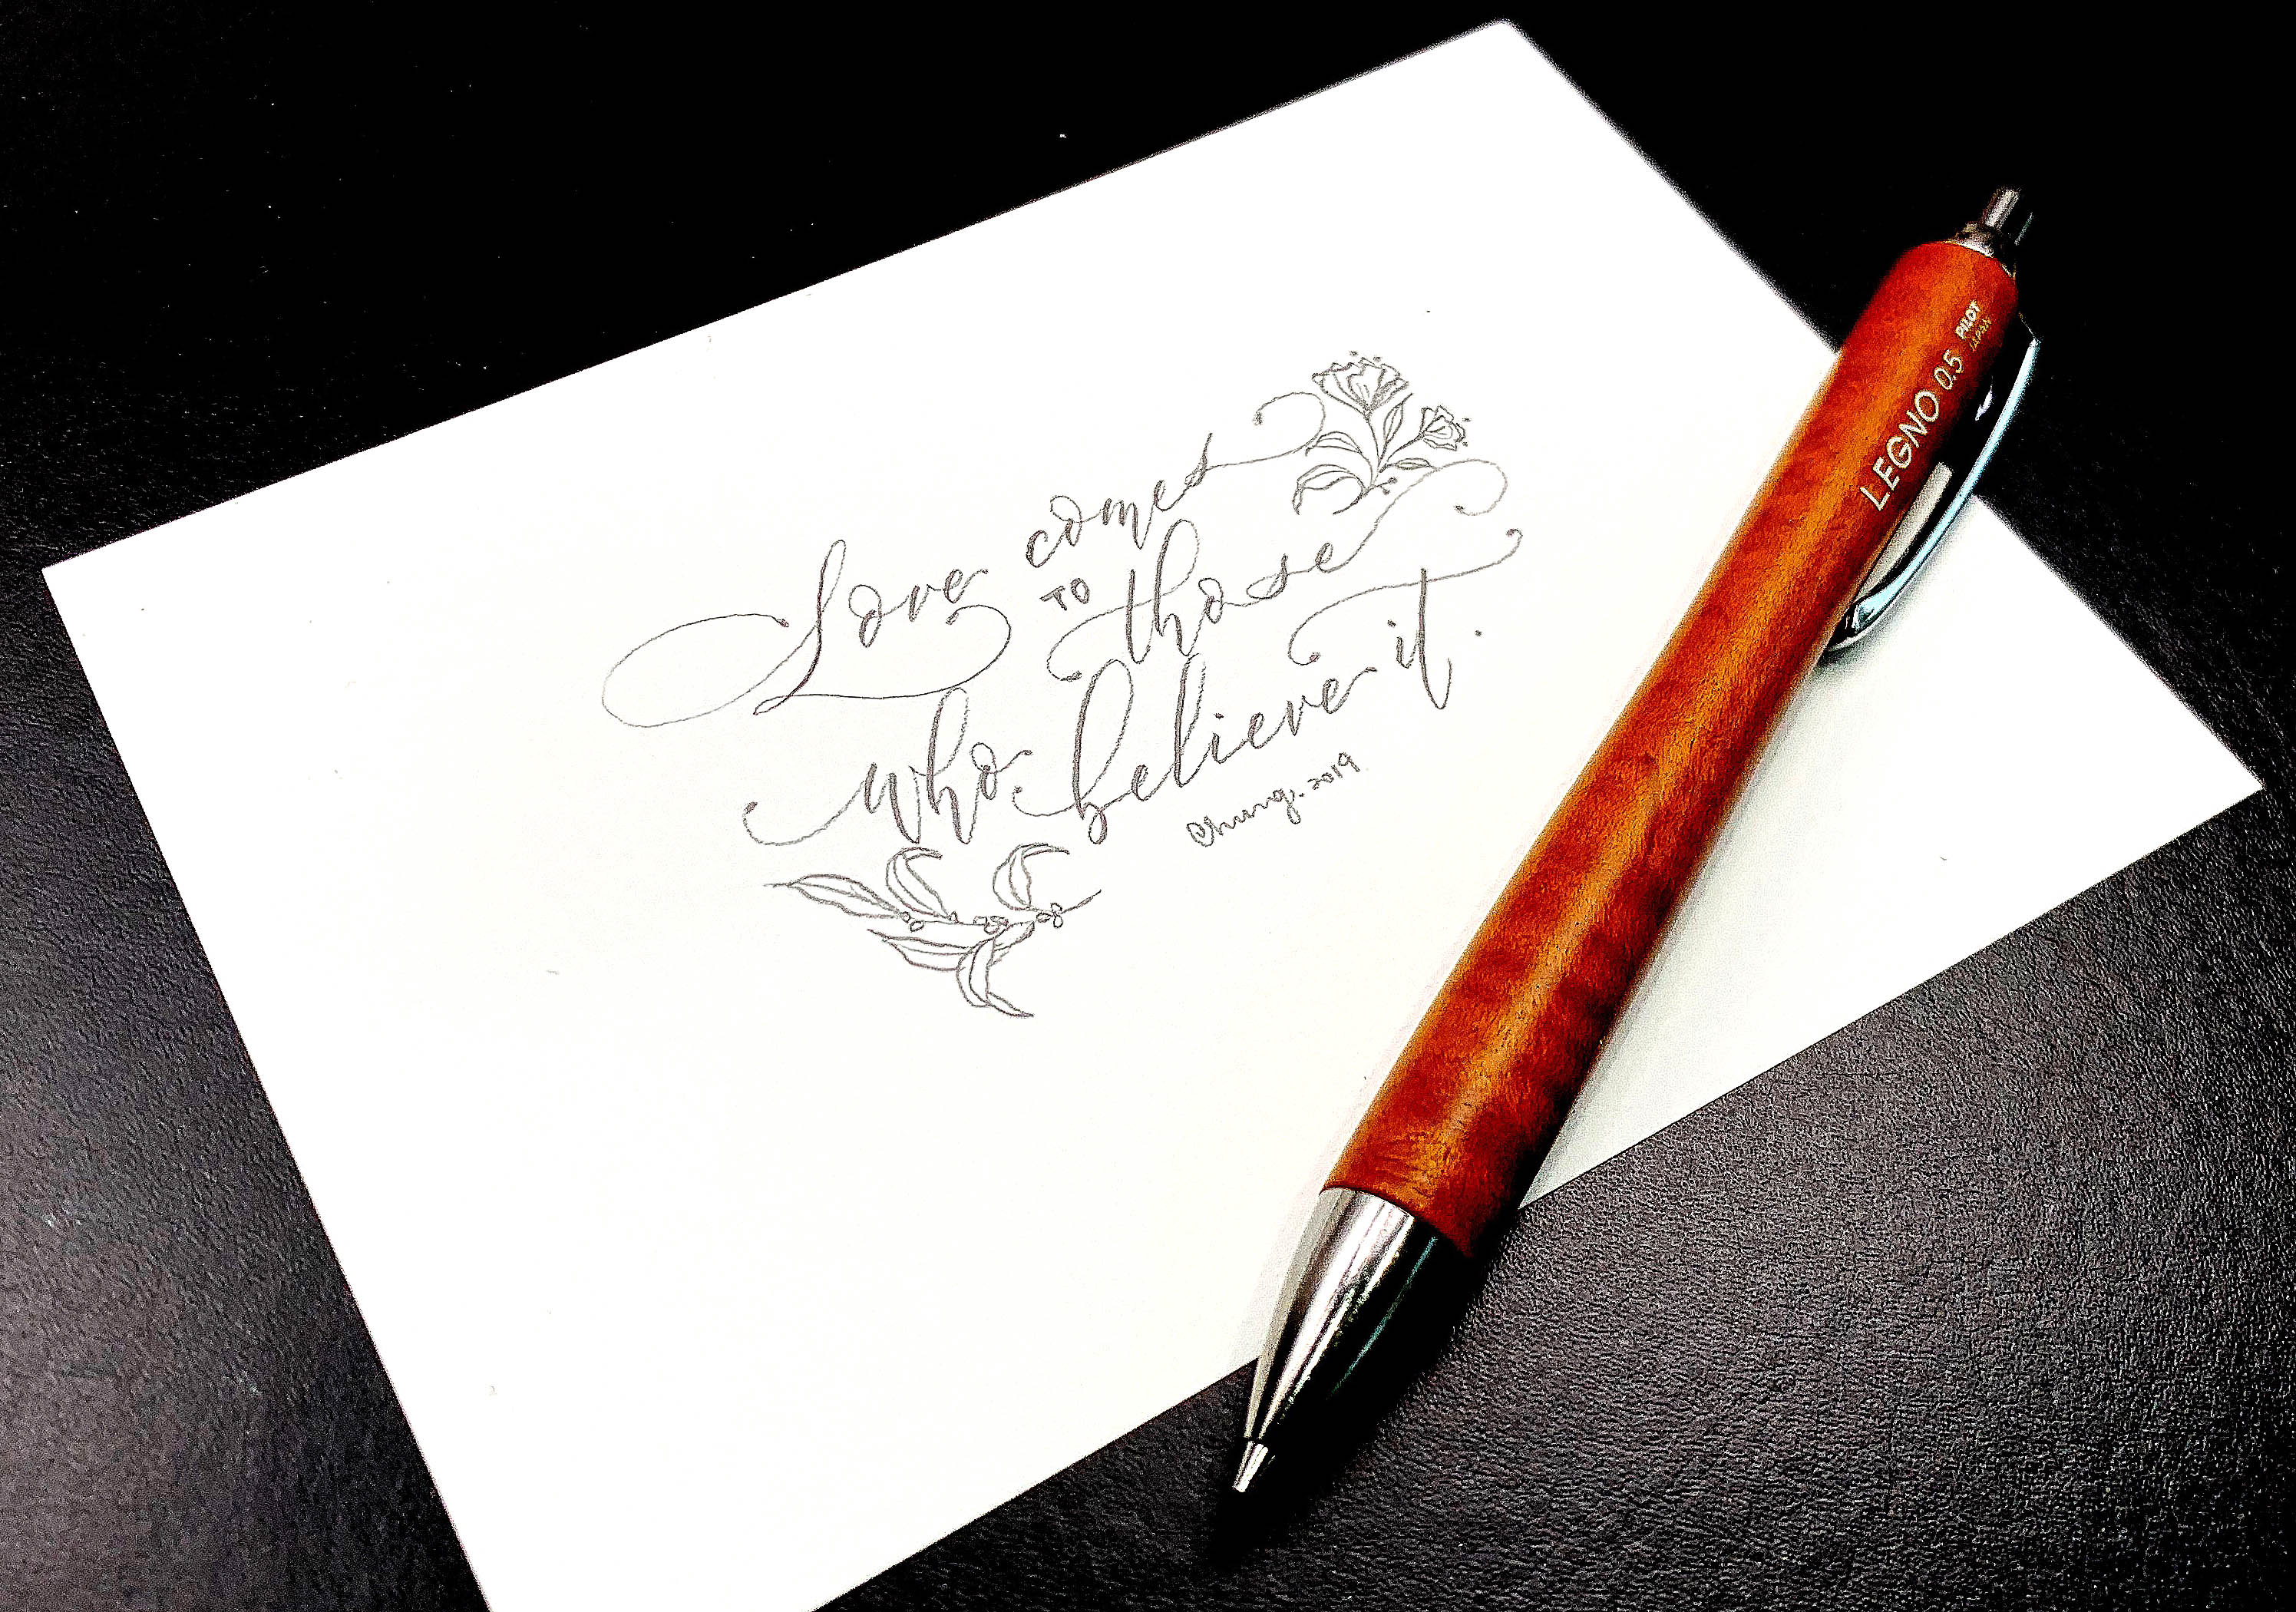 Love comes
TO those
who believe it.
Chung. 2019
LEGNO 0.5
PILOT
JAPAN